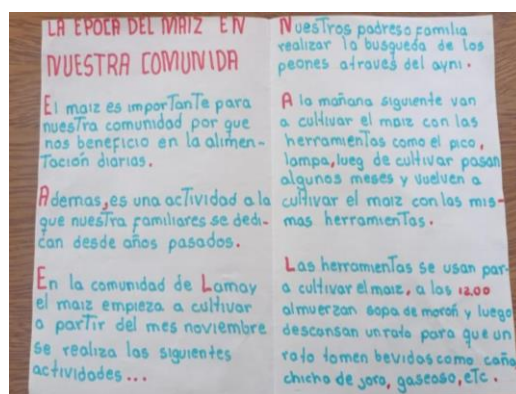 LA EPOCA DEL MAIZ EN
NUESTRA COMUNIDA
El maiz es importante para
nuestra comunidad por que
nos beneficio en la alimen-
tación diarias.
Ademas, es una actividad a la
que nuestra familiares se dedi-
can desde años pasados.
En la comunidad de Lamay
el maiz empieza a cultivar
a partir del mes noviembre
se realiza las siguientes
actividades...
Nuestros padreso familia
realizar la busqueda de los
peones através del ayni.
A la mañana siguiente van
a cultivar el maiz con las
herramientas como el pico,
lampa, lueg de cultivar pasan
algunos meses y vuelven a
cultivar el maiz con las mis-
mas herramientas.
Las herramientas se usan par-
a cultivar el maiz, a las 12.00
almuerzan sopa de moron y luego
descansan un rato para que un
rato tomen bevidas como caña
chicha de jora, gaseosa, etc.